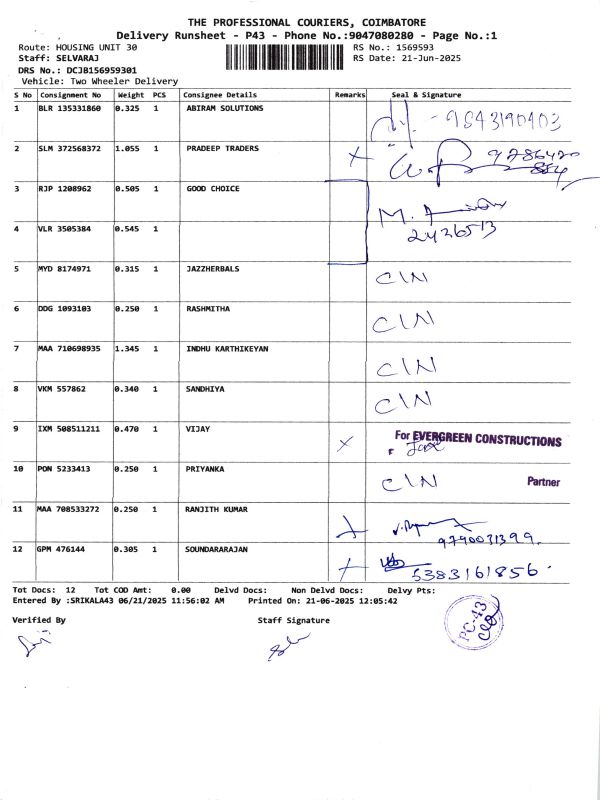 THE PROFESSIONAL COURIERS, COIMBATORE
Delivery Runsheet - P43 - Phone No.:9047080280 - Page No.:1
Route: HOUSING UNIT 30 RS No.: 1569593
Staff: SELVARAJ RS Date: 21-Jun-2025
DRS No.: DCJB156959301
Vehicle: Two Wheeler Delivery
S No Consignment No Weight PCS Consignee Details Remarks Seal & Signature
1 BLR 135331860 0.325 1 ABIRAM SOLUTIONS - 9843190403
2 SLM 372568372 1.055 1 PRADEEP TRADERS X 9786420
884
3 RJP 1208962 0.505 1 GOOD CHOICE M.
4 VLR 3505384 0.545 1 2426513
5 MYD 8174971 0.315 1 JAZZHERBALS CIN
6 DDG 1093103 0.250 1 RASHMITHA CIN
7 MAA 710698935 1.345 1 INDHU KARTHIKEYAN CIN
8 VKM 557862 0.340 1 SANDHIYA CIN
9 IXM 508511211 0.470 1 VIJAY X For EVERGREEN CONSTRUCTIONS
10 PON 5233413 0.250 1 PRIYANKA CIN Partner
11 MAA 708533272 0.250 1 RANJITH KUMAR X 9790031399.
12 GPM 476144 0.305 1 SOUNDARARAJAN X 6383161856.
Tot Docs: 12 Tot COD Amt: 0.00 Delvd Docs: Non Delvd Docs: Delvy Pts:
Entered By :SRIKALA43 06/21/2025 11:56:02 AM Printed On: 21-06-2025 12:05:42
Verified By Staff Signature
PC-43